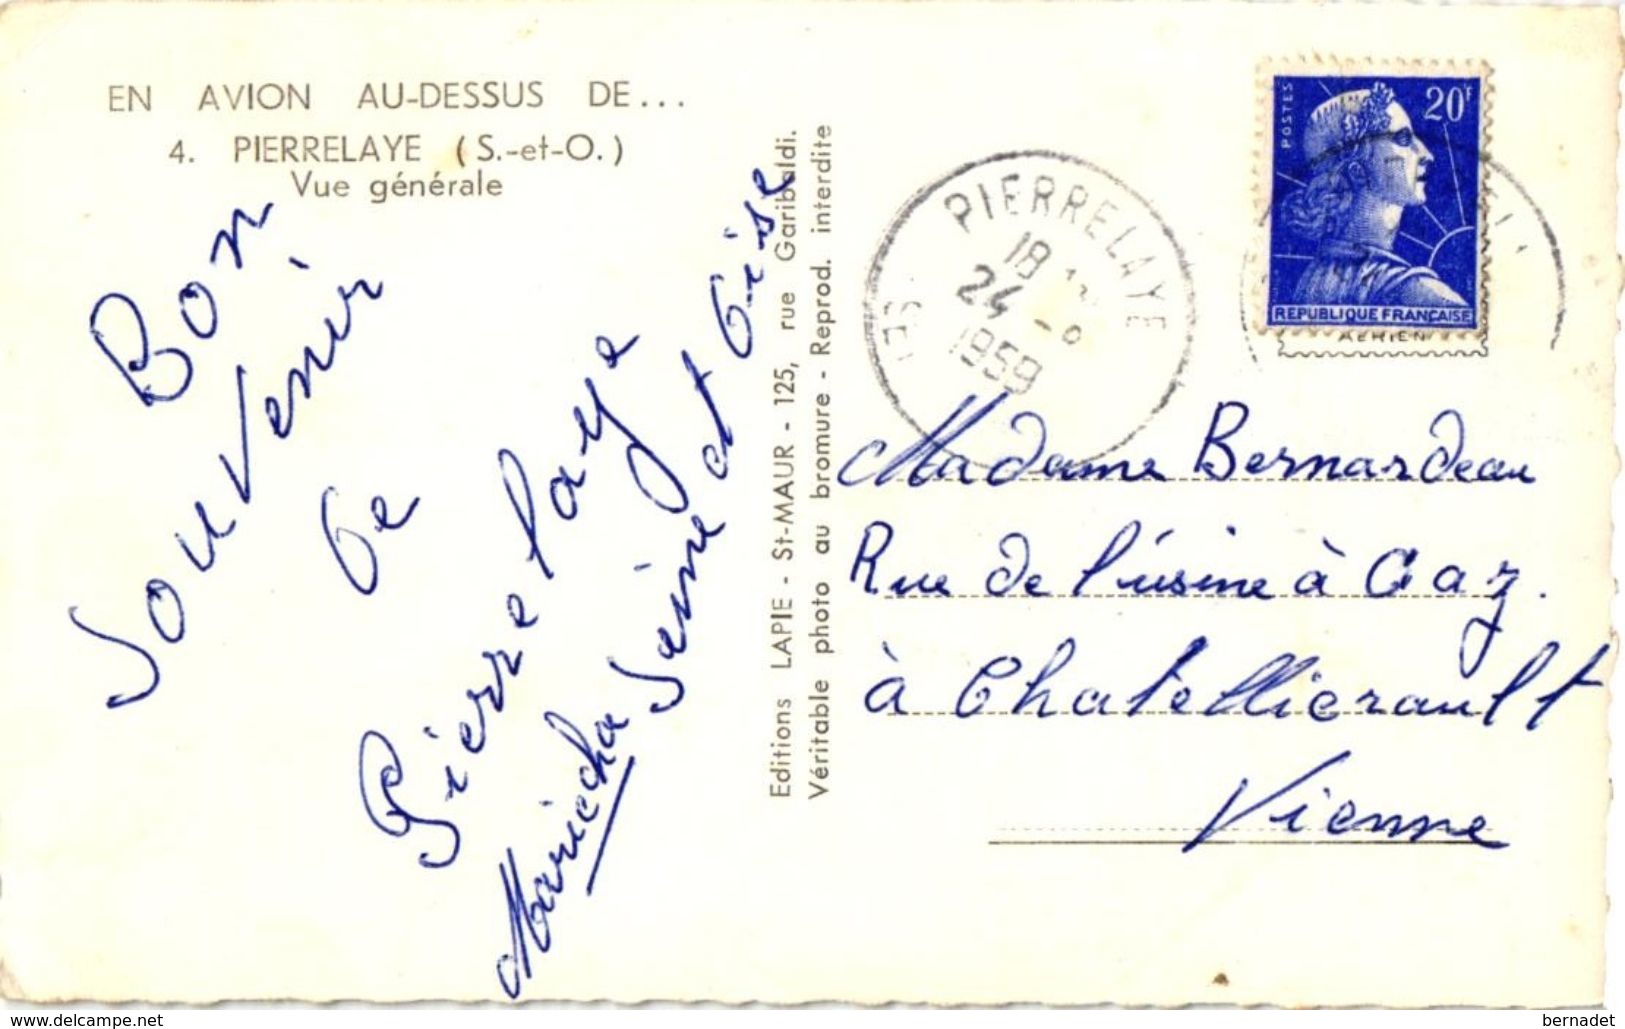 EN AVION AU-DESSUS DE...
4. PIERRELAYE (S.-et-O.)
Vue générale
Bon
Souvenir
de
Pierrelaye
Seine et Oise
Maricha
Editions LAPIE - St-MAUR - 125, rue Garibaldi.
Véritable photo au bromure - Reprod. interdite
PIERRELAYE
18
24 -8
1959
POSTES
20F
REPUBLIQUE FRANÇAISE
AÉRIEN
Madame Bernardeau
Rue de l'usine à Gaz.
à Chatellierault
Vienne
www.delcampe.net
bernadet